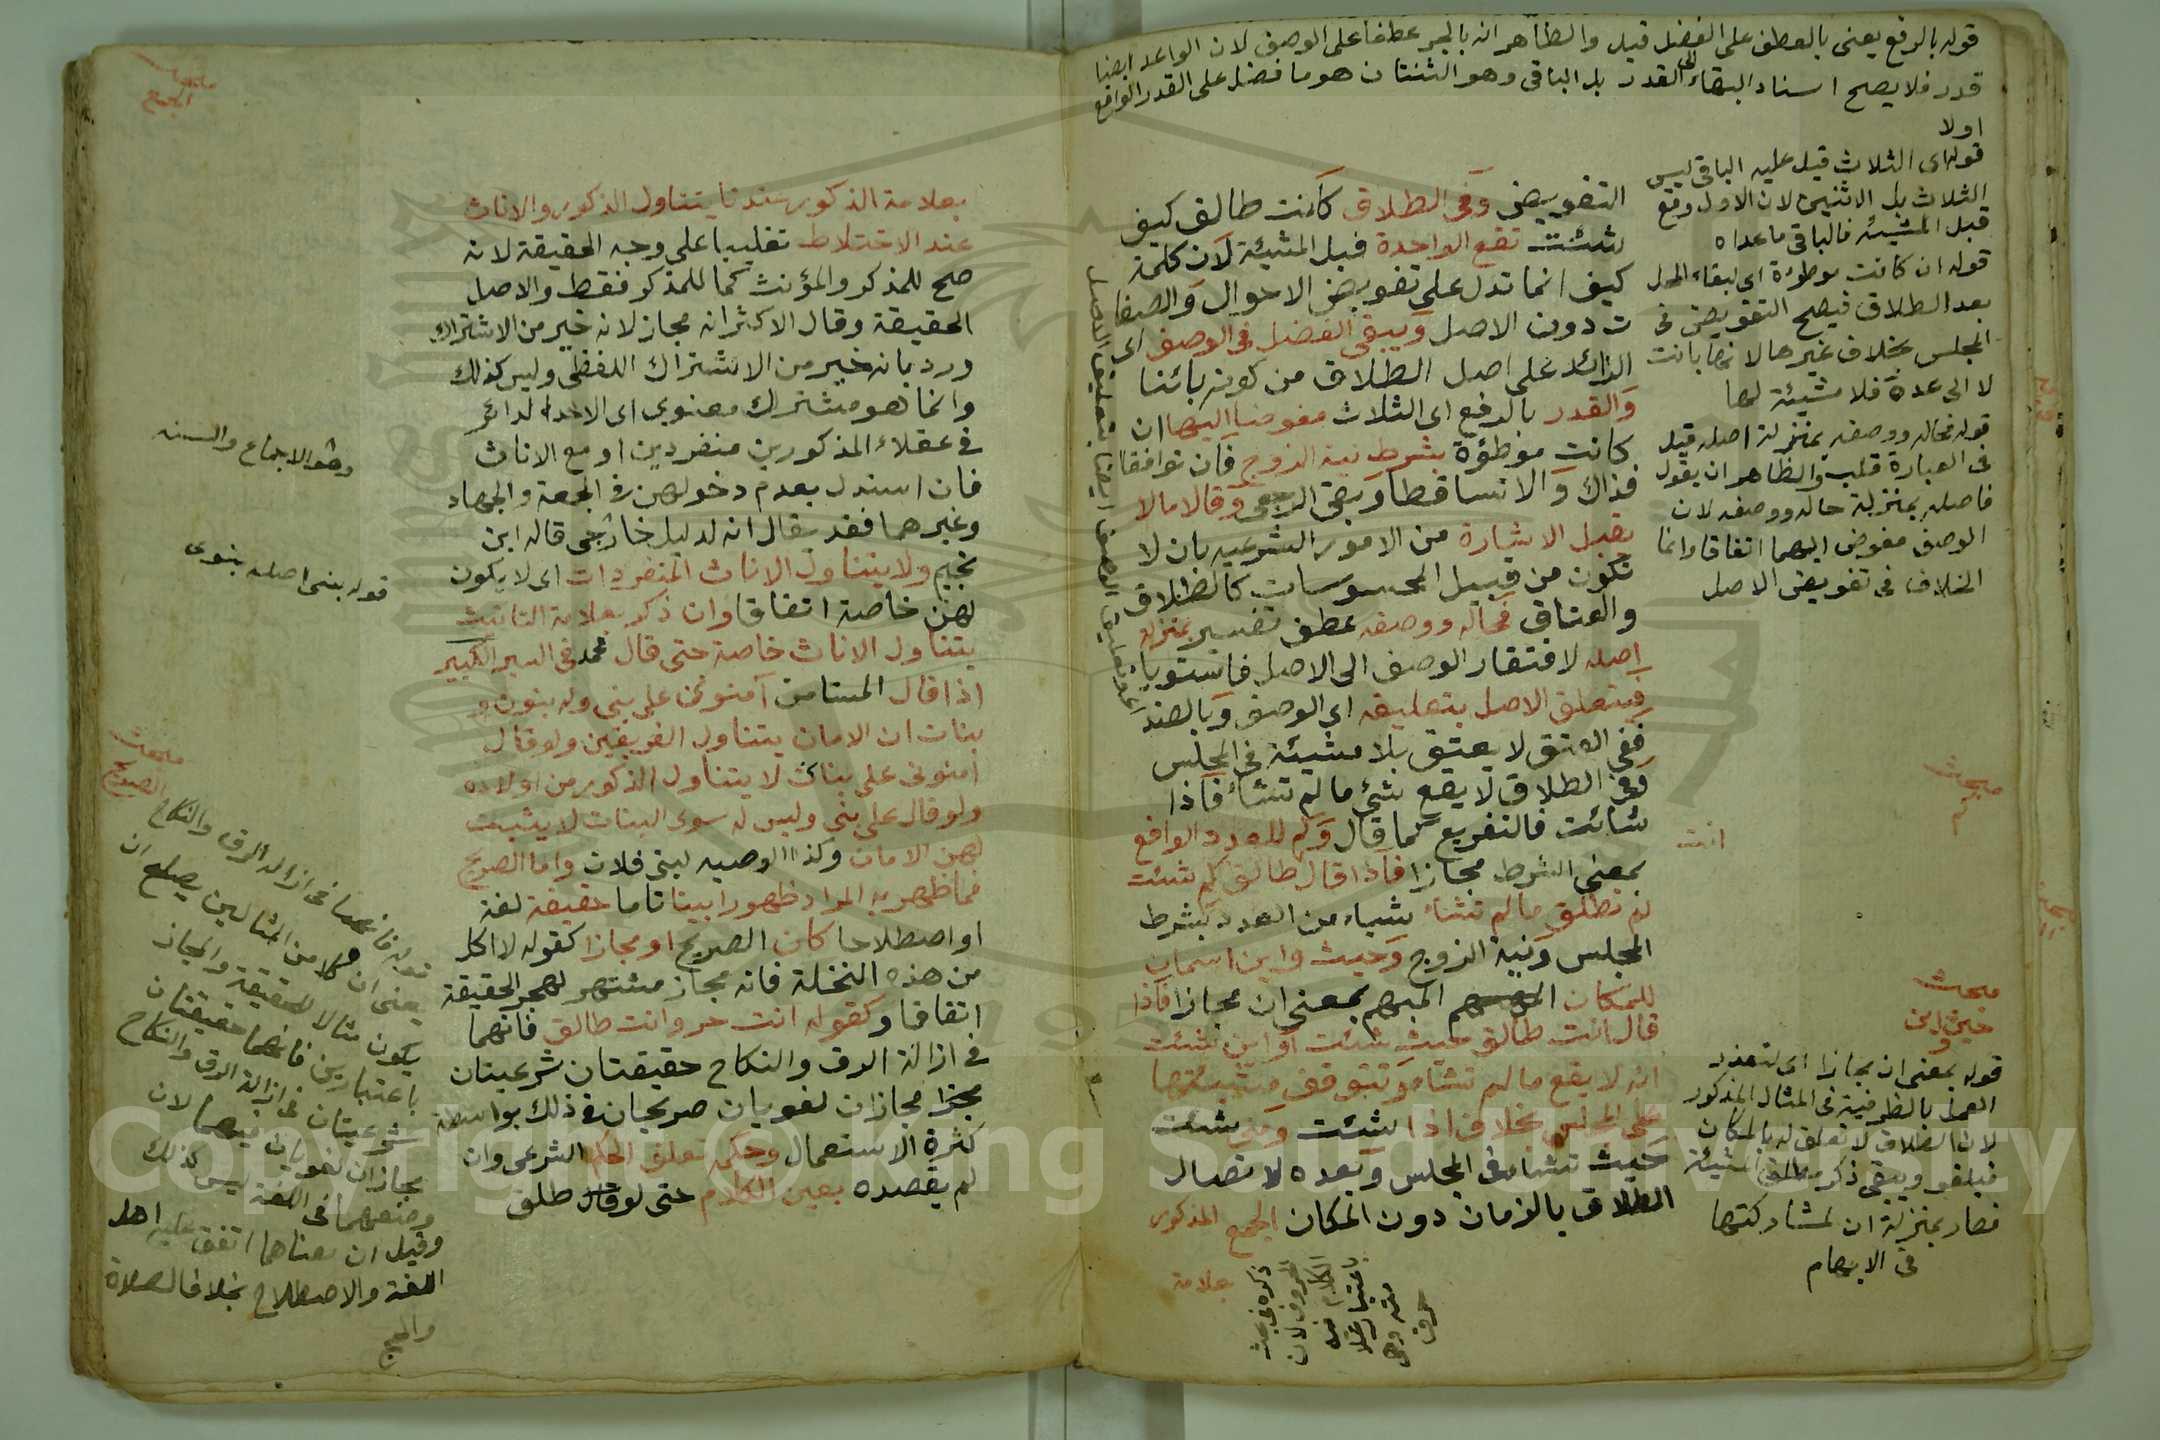 قوله بالرفع يعنى بالعطف على الفضل قيل والظاهر انه بالجر عطفا على الوصف لان الواعد ايضا
قدر فلا يصح اسناد البقاء الى القدر بل الباقى وهو الثنتان هو ما فضل على القدر الواقع
اولا
قوله اى الثلاث قيل عليه الباقى ليس
الثلاث بل الاثنين لان الاول وقع
قبل المشيئه فالباقى ما عداه
قوله ان كانت موطوءة اى لبقاء المحل
بعد الطلاق فيصح التفويض فى
المجلس بخلاف غيرها لانها بانت
لا الى عدة فلا مشيئة لها
قوله فحاله ووصفه بمنزلة اصله قيل
فى العبارة قلب والظاهر ان يقول
فاصله بمنزلة حاله ووصفه لان
الوصف مفوض اليهما اتفاقا وانما
الخلاف فى تفويض الاصل
التفويض وفى الطلاق كأنت طالق كيف
شئت تقع الواحدة قبل المشيئة لان كلمة
كيف انما تدل على تفويض الاحوال والصفا
ت دون الاصل ويبقى الفضل فى الوصف اى
الزائد على اصل الطلاق من كونه بائنا
والقدر بالرفع اى الثلاث مفوضا اليها ان
كانت موطؤة بشرط نية الزوج فان توافقا
فذاك والا تساقطا وبقى الرجعى وقالا مالا
يقبل الاشارة من الامور الشرعيه بان لا
تكون من قبيل المحسوسات كالطلاق
والعتاق فحاله ووصفه عطف تفسير بمنزلة
اصله لافتقار الوصف الى الاصل فاستويا
فيتعلق الاصل بتعليقه اى الوصف وبالضد
ففى العتق لا يعتق بلا مشيئة فى المجلس
وفى الطلاق لا يقع شئ ما لم تشأ فاذا
شائت فالتفريع كما قال وكم للعدد الواقع
بمعنى الشرط مجازا فاذا قال طالق كم شئت
انت
لم تطلق ما لم تشاء شياء من العدد بشرط
المجلس ونية الزوج وحيث واين اسمان
للمكان المبهم المبهم بمعنى ان مجازا فاذا
قال انت طالق حيث شئت او اين شئت
انه لا يقع ما لم تشأ وتتوقف مشيئتها
على المجلس بخلاف اذا شئت ومتى شئت
حيث تشأ فى المجلس وبعده لاتصال
الطلاق بالزمان دون المكان الجمع المذكور
بعلامة
مبحث
كم
مبحث
حيث واين
قوله بمعنى ان مجازا اى لتعذر
العمل بالظرفية فى المثال المذكور
لان الطلاق لا تعلق له بالمكان
فيلغو ويبقى ذكر مطلق المشيئة
فصار بمنزلة ان لمشاركتها
فى الابهام
بعلامة الذكور عندنا يتناول الذكور والاناث
عند الاختلاط تغليبا على وجه الحقيقة لانه
صح للمذكر والمؤنث كما للمذكر فقط والاصل
الحقيقة وقال الاكثر انه مجاز لانه خير من الاشتراك
ورد بانه خير من الاشتراك اللفظى وليس كذلك
وانما هو مشترك معنوى اى الاحد الدائر
فى عقلاء المذكورين منفردين او مع الاناث
فان استدل بعدم دخولهن فى الجمعة والجهاد
وغيرهما فقد يقال انه لدليل خارجى قاله ابن
نجيم ولا يتناول الاناث المنفردات اى لا يكون
لهن خاصة اتفاقا وان ذكر بعلامة التانيث
يتناول الاناث خاصة حتى قال محمد فى السير الكبير
اذا قال المستامن آمنونى على بنى وله بنون و
بنات ان الامان يتناول الفريقين ولو قال
امنونى على بناتى لا يتناول الذكور من اولاده
ولو قال على بنى وليس له سوى البنات لا يثبت
لهن الامان وكذا الوصيه لبنى فلان واما الصريح
فما ظهر به المراد ظهورا بينا تاما حقيقة لغة
او اصطلاحا كان الصريح او مجازا كقوله لا اكل
من هذه النخلة فانه مجاز مشتهر لهجر الحقيقة
اتفاقا وكقوله انت حر وانت طالق فانهما
فى ازالة الرق والنكاح حقيقتان شرعيتان
مجازان لغويان صريحان فى ذلك بواسطة
كثرة الاستعمال وحكمه تعلق الحكم الشرعى وان
لم يقصده بعين الكلام حتى لو قال طلق
مبحث
الجمع
وهو الاجماع والسنه
قوله بنى اصله بنوى
مبحث
الصريح
قوله فانهما فى ازالة الرق والنكاح
يعنى ان كلا من المثالين يصلح ان
يكون مثالا للحقيقة والمجاز
باعتبارين فانهما حقيقتان
شرعيتان فى ازالة الرق والنكاح
مجازان لغويان فيهما لان
وضعهما فى اللغة ليس كذلك
وقيل ان معناهما اتفق عليه اهل
اللغة والاصطلاح بخلاف الصلاة
والحج
Copyright © King Saud University
1957